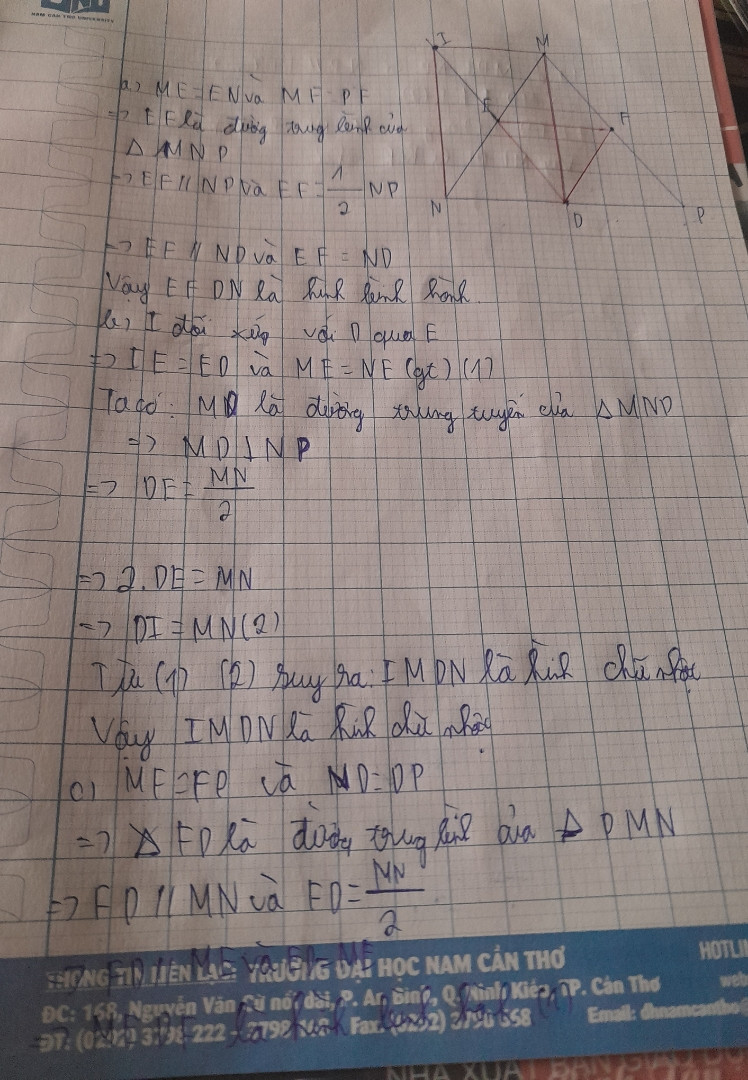 NAM CAN THO UNIVERSITY
I M
E F
N D P
a, ME = EN và MF = PF
=> EF là đường trung bình của
Δ MNP
=> EF // NP và EF = 1/2 NP
=> EF // ND và EF = ND
Vậy EFDN là hình bình hành.
b, I đối xứng với D qua E
=> IE = ED và ME = NE (gt) (1)
Ta có: MD là đường trung tuyến của ΔMNP
=> MD ⊥ NP
=> DE = MN/2
=> 2. DE = MN
=> DI = MN (2)
Từ (1) (2) suy ra: IMDN là hình chữ nhật
Vậy IMDN là hình chữ nhật
c, MF = FP và ND = DP
=> FD là đường trung bình của Δ PMN
=> FD // MN và FD = MN/2
=> FD // ME và FD = ME
THÔNG TIN LIÊN LẠC TRƯỜNG ĐẠI HỌC NAM CẦN THƠ
HOTLI
ĐC: 168, Nguyễn Văn Cừ nối dài, P. An Bình, Q. Ninh Kiều, TP. Cần Thơ
web
=> là hình bình hành (1)
ĐT: (0292) 3798 222 Fax: Email: dhnamcantho
NHÀ XUẤT BẢN GIÁO DỤ